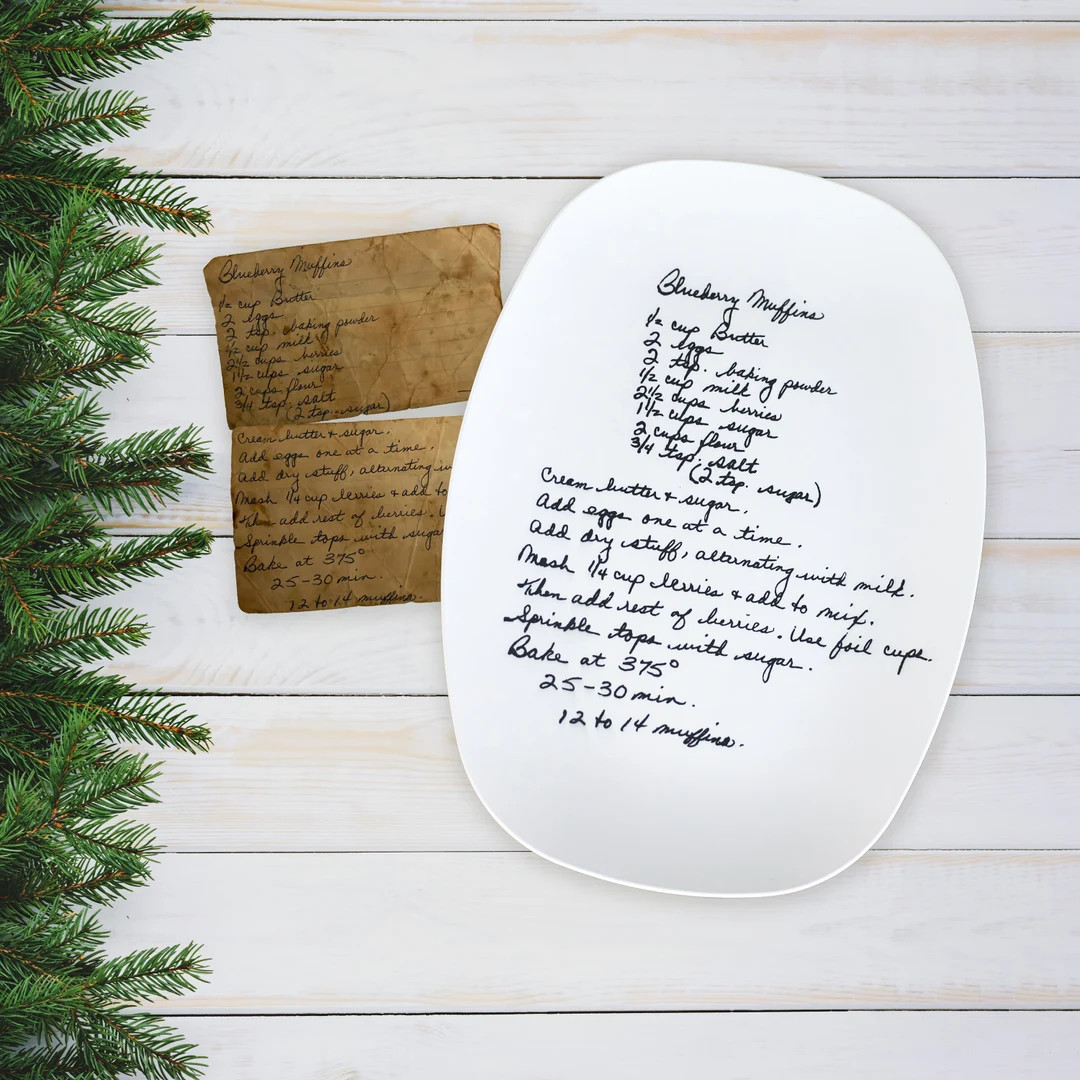 Blueberry Muffins
1/2 cup Butter
2 eggs
2 tsp. baking powder
1/2 cup milk
2 1/2 cups berries
1 1/2 cups sugar
2 cups flour
3/4 tsp. salt
(2 tsp. sugar)
Cream butter & sugar.
Add eggs one at a time.
Add dry stuff, alternating w
Mash 1/4 cup berries & add to
Then add rest of berries. U
Sprinkle tops with sugar
Bake at 375°
25-30 min.
12 to 14 muffins.
Blueberry Muffins
1/2 cup Butter
2 eggs
2 tsp. baking powder
1/2 cup milk
2 1/2 cups berries
1 1/2 cups sugar
2 cups flour
3/4 tsp. salt
(2 tsp. sugar)
Cream butter & sugar.
Add eggs one at a time.
Add dry stuff, alternating with milk.
Mash 1/4 cup berries & add to mix.
Then add rest of berries. Use foil cups.
Sprinkle tops with sugar.
Bake at 375°
25-30 min.
12 to 14 muffins.